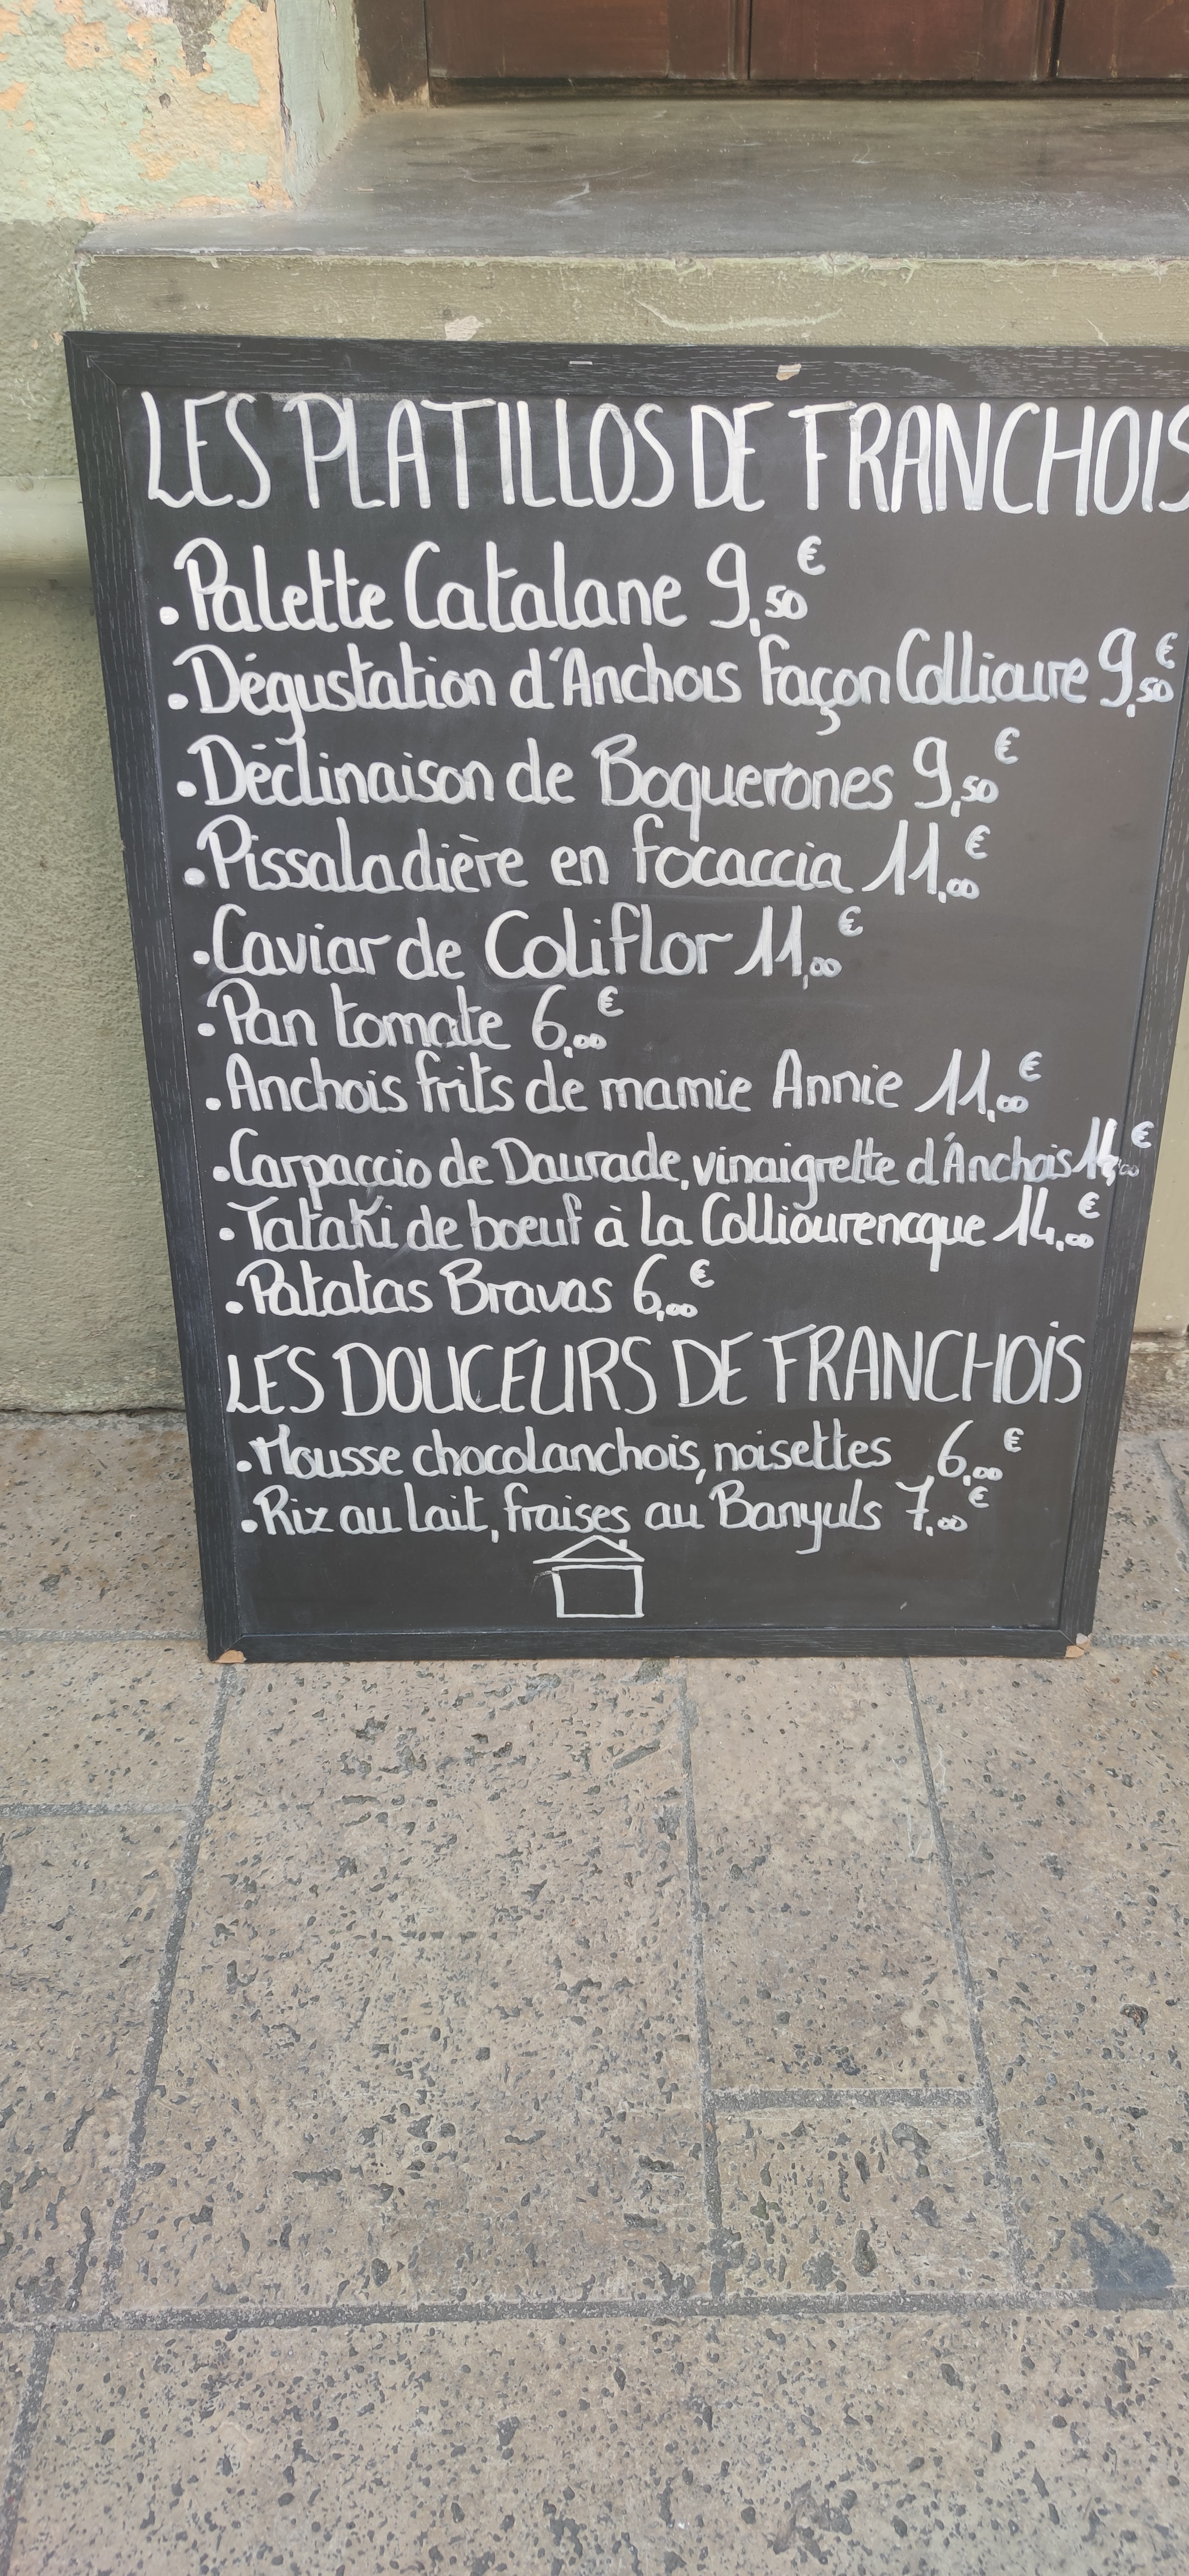 LES PLATILLOS DE FRANCHOIS
.Palette Catalane 9,50€
.Dégustation d'Anchois façon Collioure 9,50€
.Déclinaison de Boquerones 9,50€
.Pissaladière en focaccia 11,00€
.Caviar de Coliflor 11,00€
.Pan tomate 6,00€
.Anchois frits de mamie Annie 11,00€
.Carpaccio de Daurade, vinaigrette d'Anchois
.Tataki de boeuf à la Colliourencque 14,00€
.Patatas Bravas 6,00€
LES DOUCEURS DE FRANCHOIS
.Mousse chocolanchois, noisettes 6,00€
.Riz au lait, fraises au Banyuls 7,00€